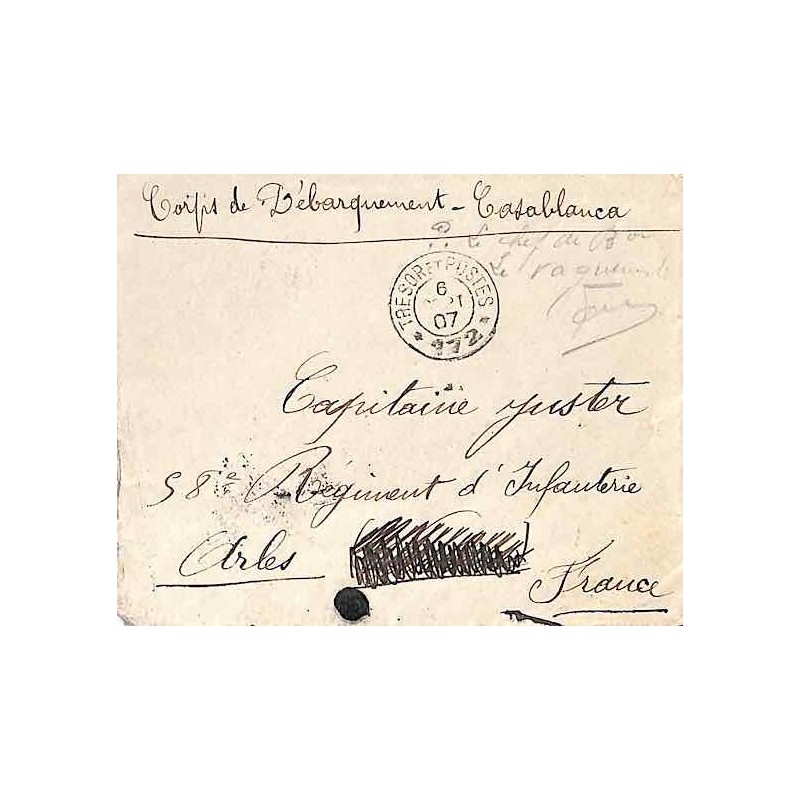 Corps de Débarquement - Casablanca
P. Le chef de Bon
Le vaguemestre
TRESOR ET POSTES
6
07
* 172 *
Capitaine Juster
58e Régiment d'Infanterie
Arles
France